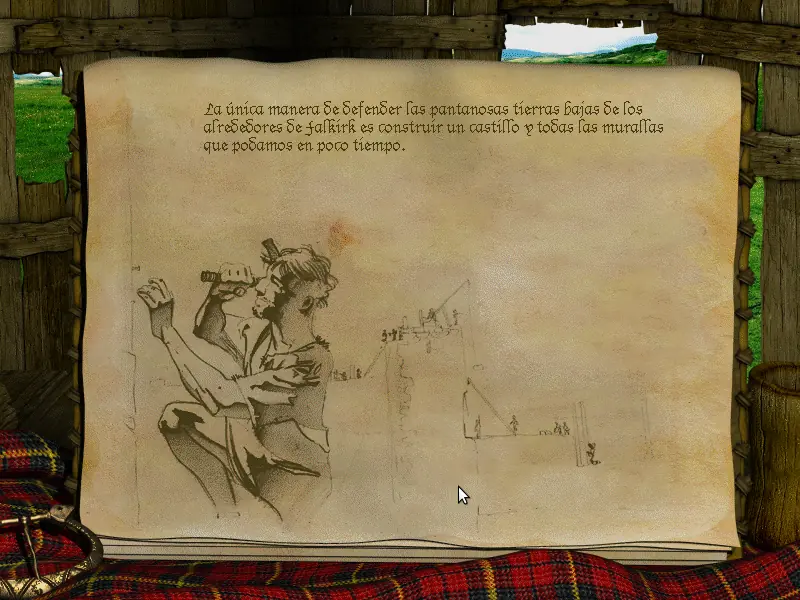 La única manera de defender las pantanosas tierras bajas de los
alrededores de Falkirk es construir un castillo y todas las murallas
que podamos en poco tiempo.